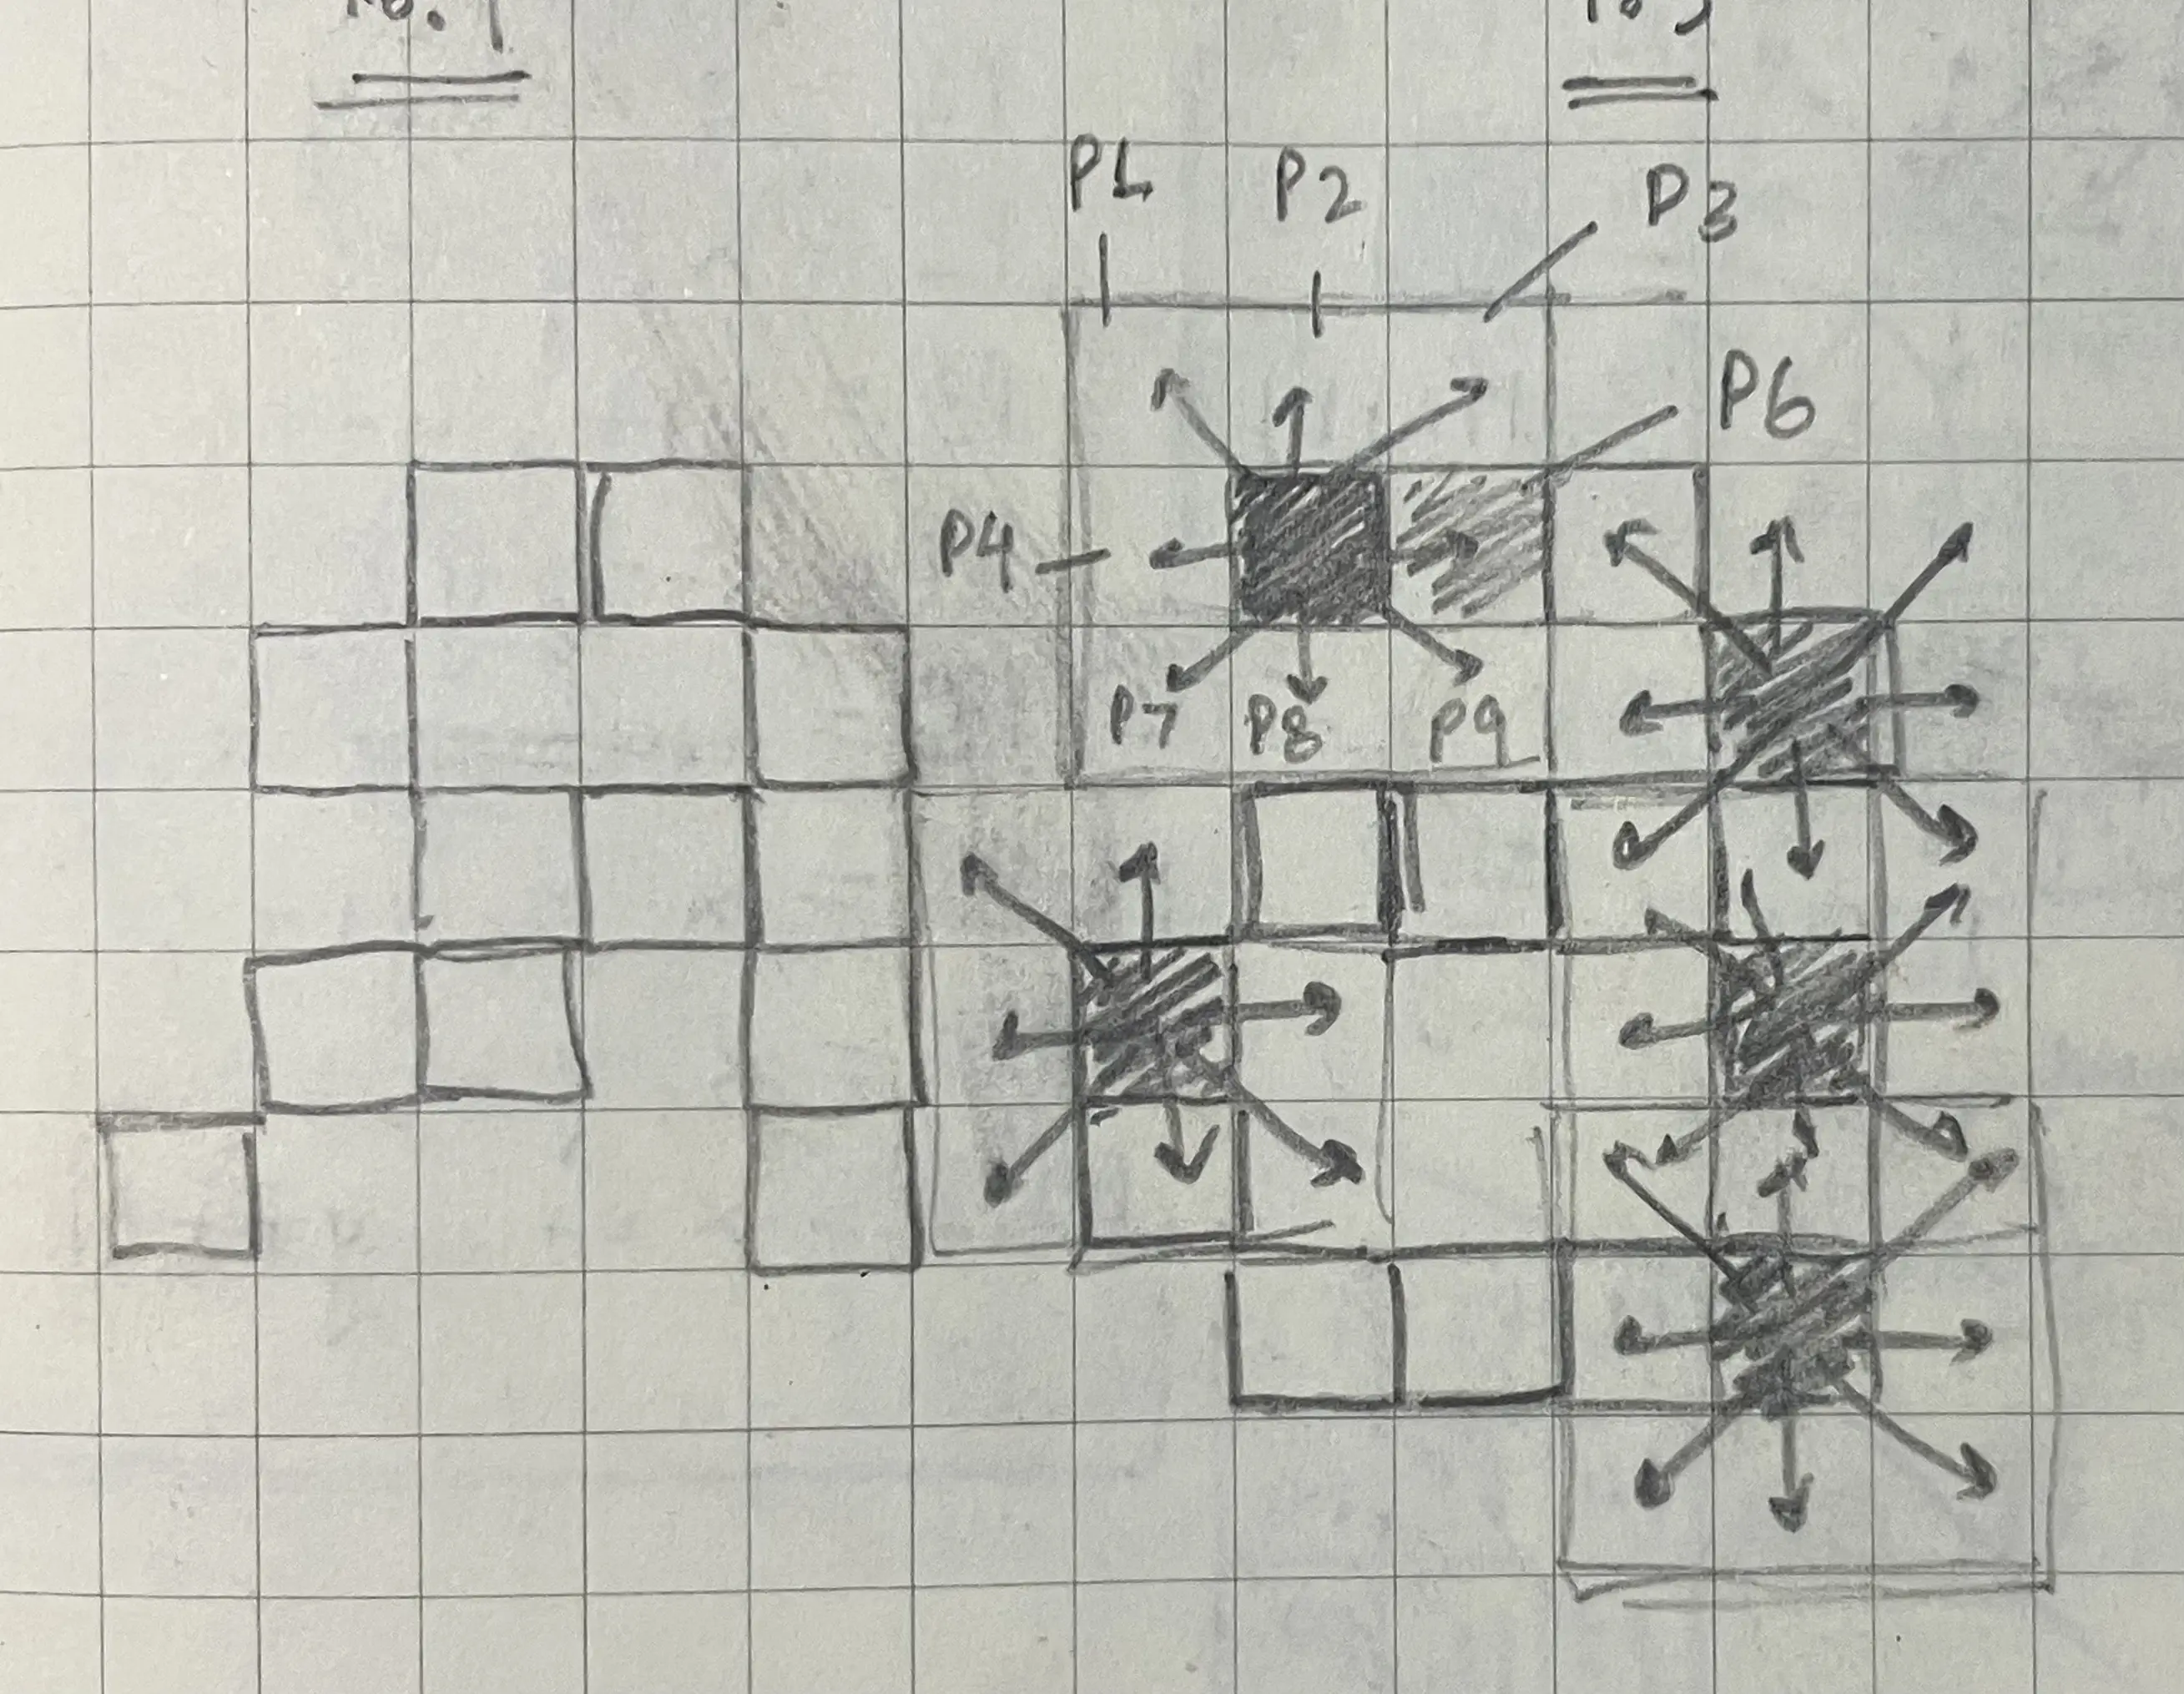 P1 P2 P3
P6
P4
P7 P8 P9